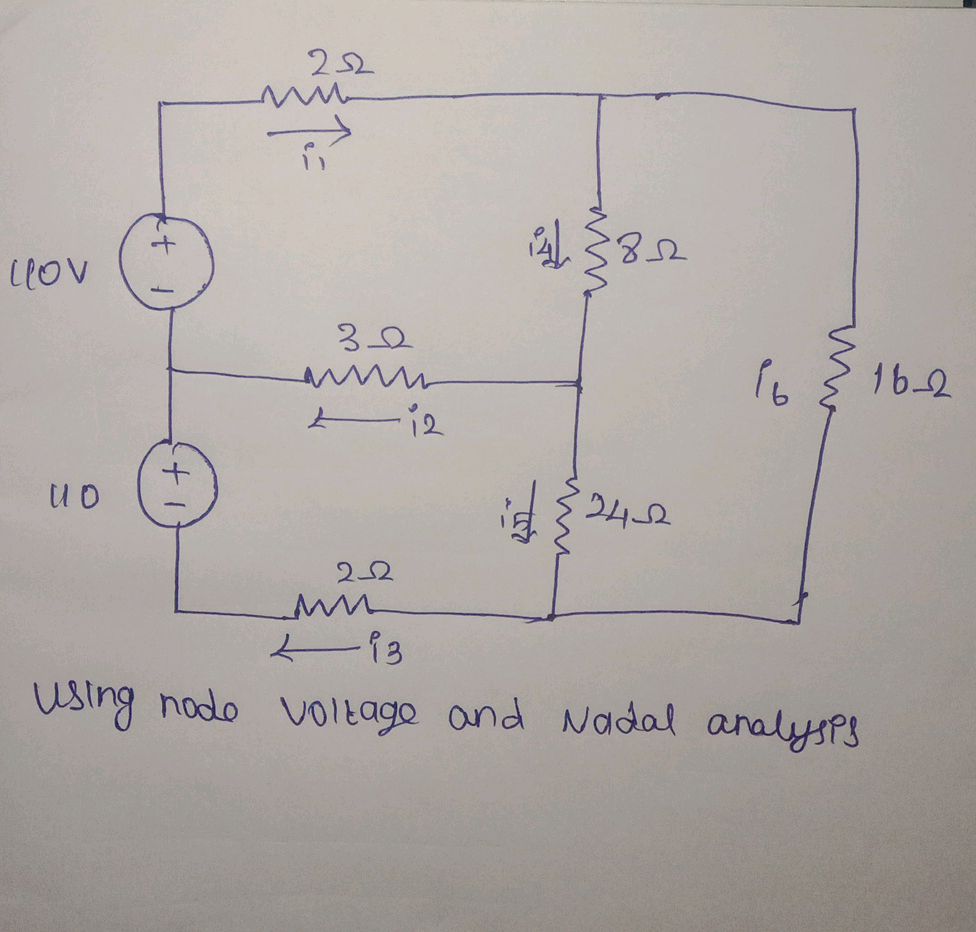 2Ω
i1
110V
+
-
i4
8Ω
3Ω
i2
i6
16Ω
110
+
-
i5
24Ω
2Ω
i3
Using node voltage and Nadal analysis